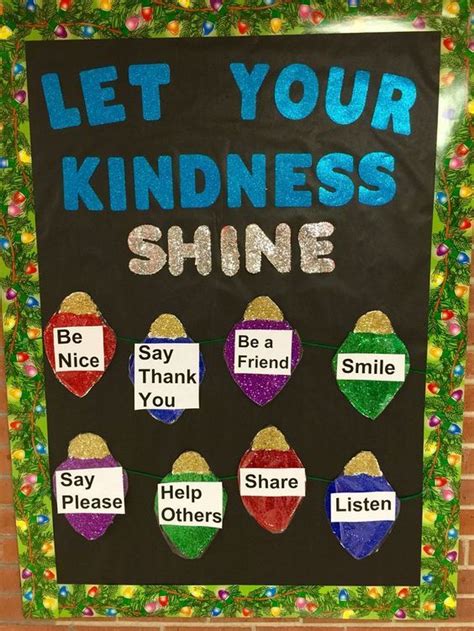 LET YOUR
KINDNESS
SHINE
Be
Nice
Say
Thank
You
Be a
Friend
Smile
Say
Please
Help
Others
Share
Listen